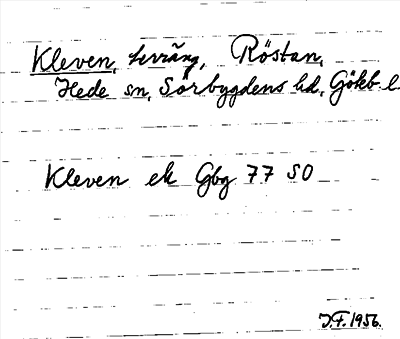 Kleven, terräng, Röstan,
Hede sn, Sörbygdens hd, Gökb l.
Kleven ek Gbg 77 SO
J.F. 1956.